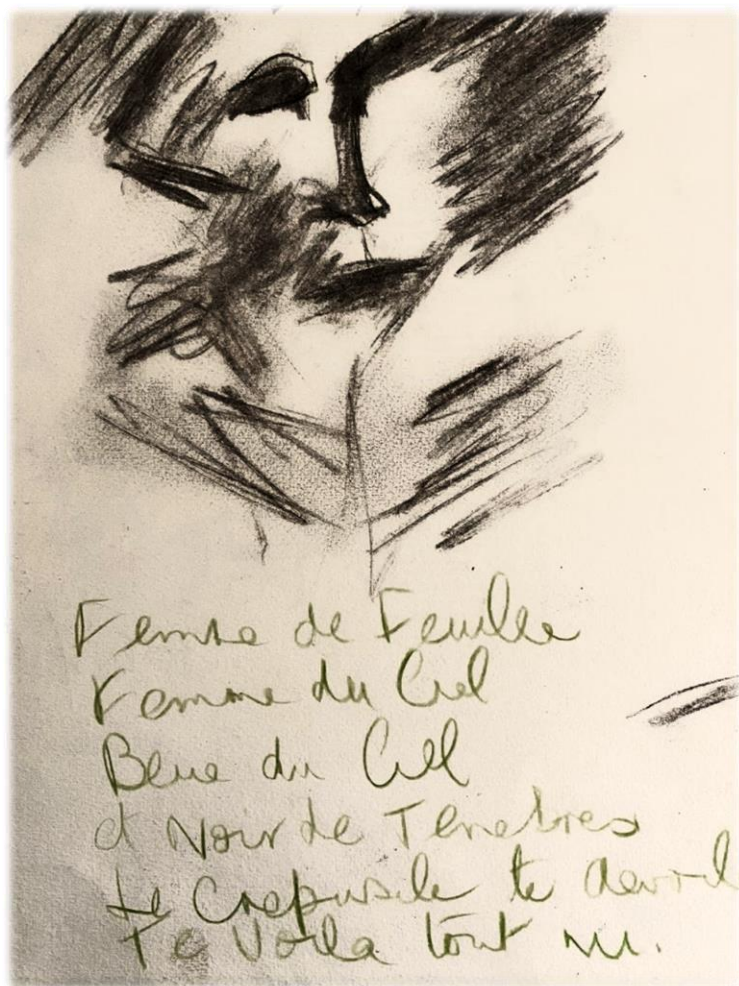 Femme de Feuille
Femme du Ciel
Bleue du Ciel
et Noir de Tenebres
Le Crepuscule te
Te Voila tout nu.